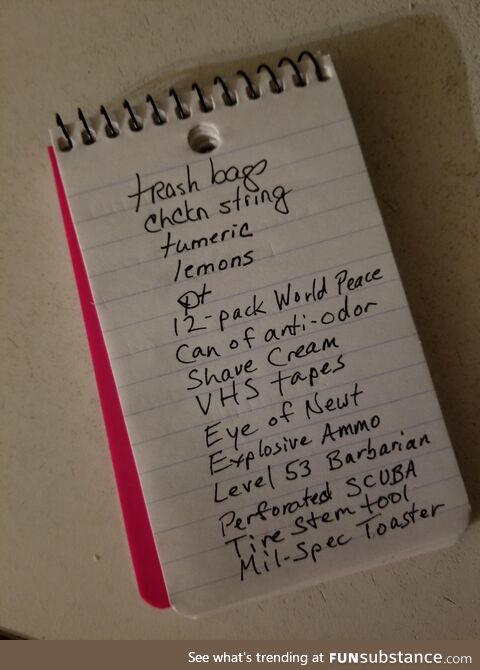 trash bags
chckn string
tumeric
lemons
pt
12-pack World Peace
Can of anti-odor
Shave Cream
VHS tapes
Eye of Newt
Explosive Ammo
Level 53 Barbarian
Perforated SCUBA
Tire Stem tool
Mil-Spec Toaster
See what's trending at FUNsubstance.com